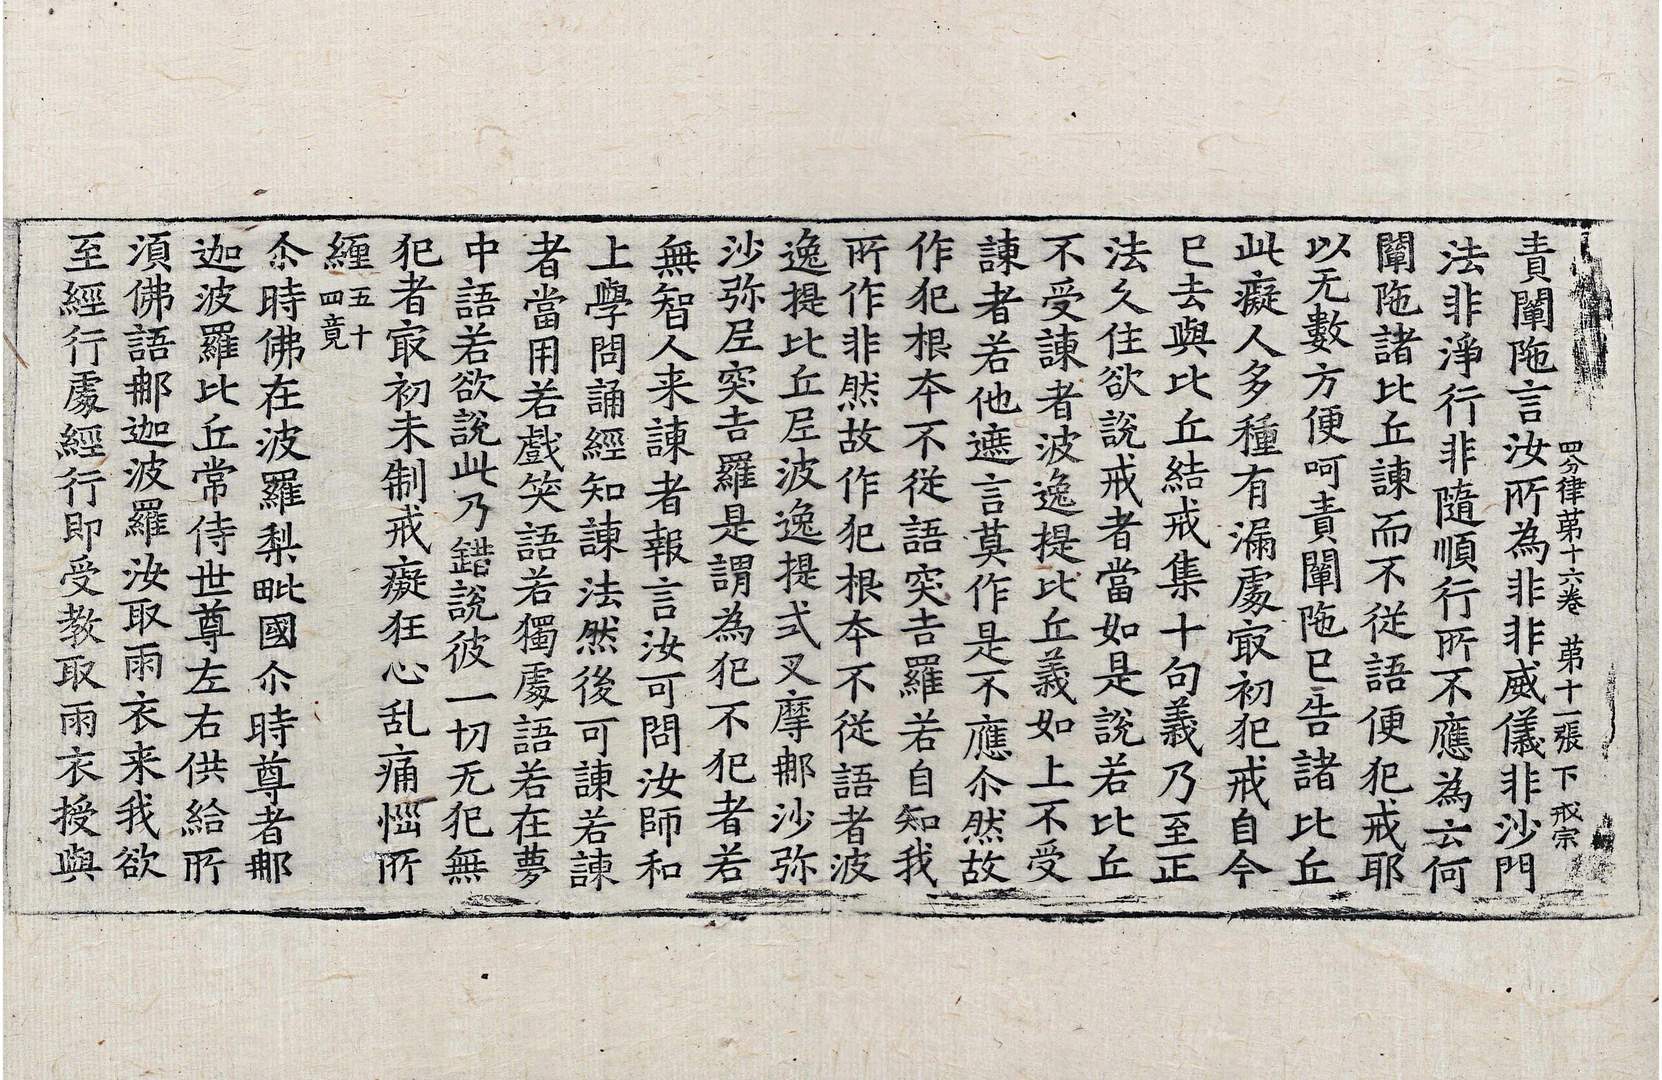 四分律苐十六卷　苐十一張　下　戒宗
責闡陁言汝所為非非威儀非沙門
法非淨行非隨順行所不應為云何
闡陁諸比丘諫而不從語便犯戒耶
以无數方便呵責闡陁已告諸比丘
此癡人多種有漏處㝡初犯戒自今
已去與比丘結戒集十句義乃至正
法久住欲說戒者當如是說若比丘
不受諫者波逸提比丘義如上不受
諫者若他遮言莫作是不應尒然故
作犯根夲不從語突吉羅若自知我
所作非然故作犯根夲不從語者波
逸提比丘尼波逸提式叉摩那沙弥
沙弥尼突吉羅是謂為犯不犯者若
無智人来諫者報言汝可問汝師和
上學問誦經知諫法然後可諫若諫
者當用若戲笑語若獨處語若在夢
中語若欲說此乃錯說彼一切无犯無
犯者㝡初未制戒癡狂心乱痛惱所
纏五十四竟
尒時佛在波羅梨毗國尒時尊者那
迦波羅比丘常侍世尊左右供給所
湏佛語那迦波羅汝取雨衣来我欲
至經行處經行即受教取雨衣授與